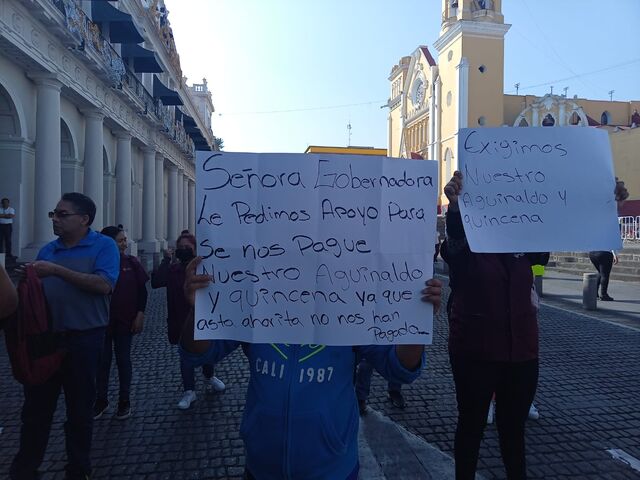 Señora Gobernadora
Le Pedimos Apoyo Para
Se nos Pague
Nuestro Aguinaldo
Y quincena ya que
asta ahorita no nos han
Pagado...
Exigimos
Nuestro
Aguinaldo y
quincena
CALI 1987